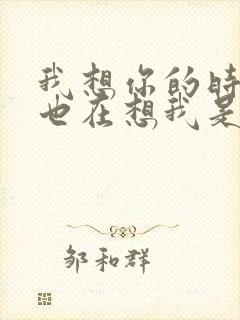 我想你的时
也在想我是
邹和群